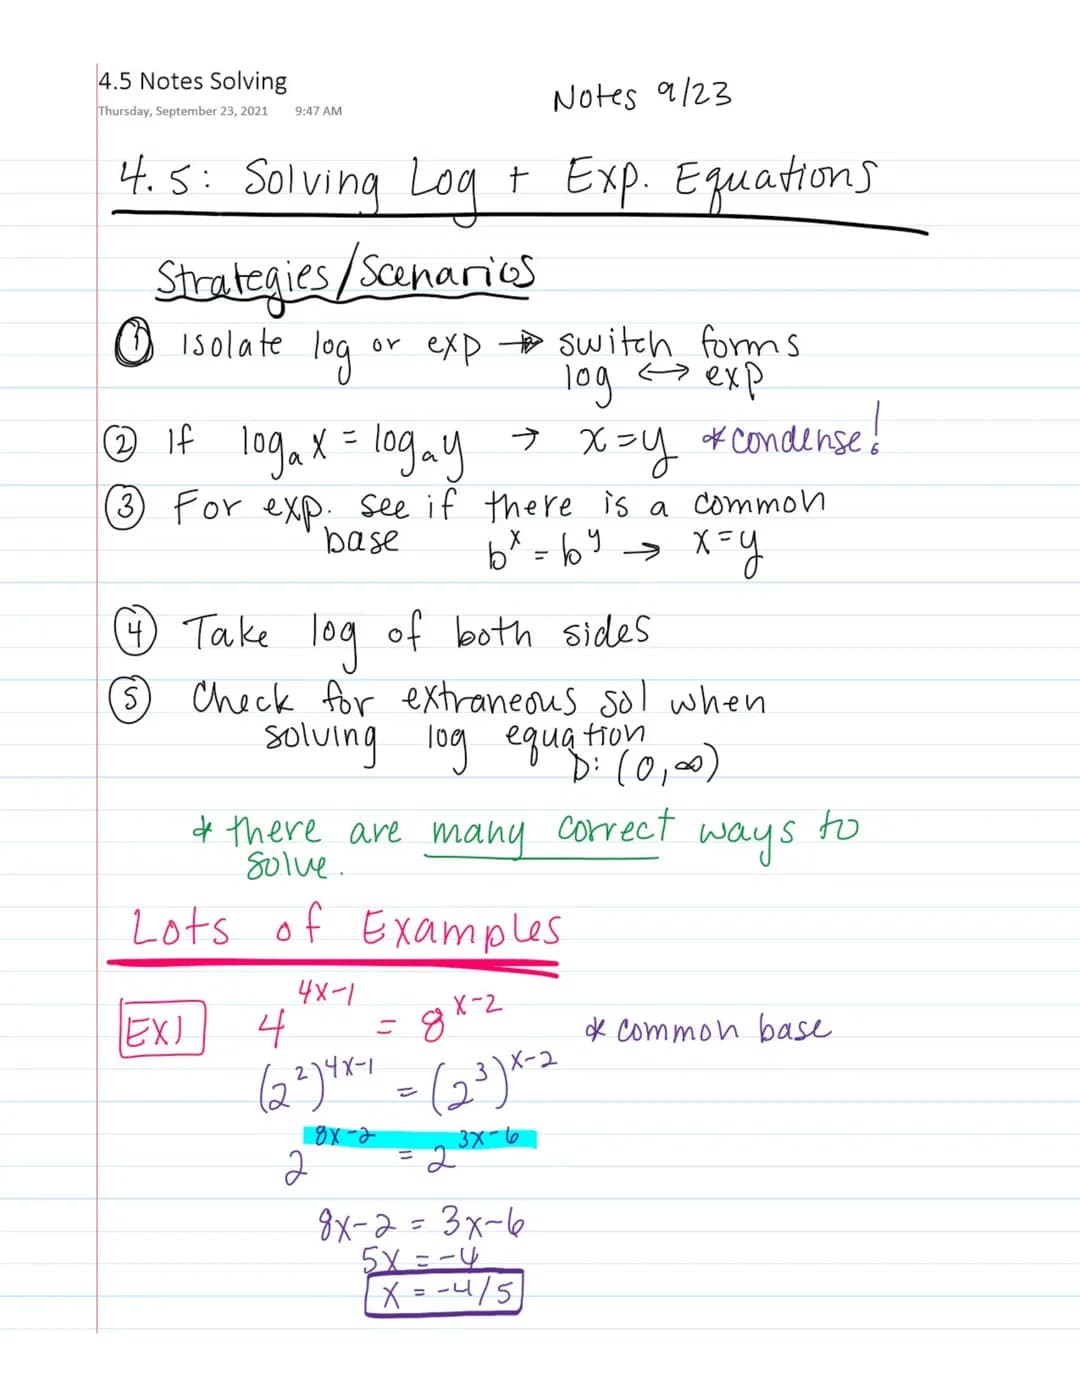 4.5 Notes Solving
Thursday, September 23, 2021 9:47 AM
Notes 9/23
4.5: Solving Log + Exp. Equations
Strategies/Scenarios
① Isolate log or exp → switch forms
log ↔ exp
② If logₐx = logₐy → x=y * condense!
③ For exp. see if there is a common
base bˣ = bʸ → x=y
④ Take log of both sides
⑤ Check for extraneous sol when
solving log equation
D: (0,∞)
* there are many correct ways to
solve.
Lots of Examples
EX) 4^{4x-1} = 8^{x-2} * common base
(2²)^{4x-1} = (2³)^{x-2}
2^{8x-2} = 2^{3x-6}
8x-2 = 3x-6
5x = -4
x = -4/5